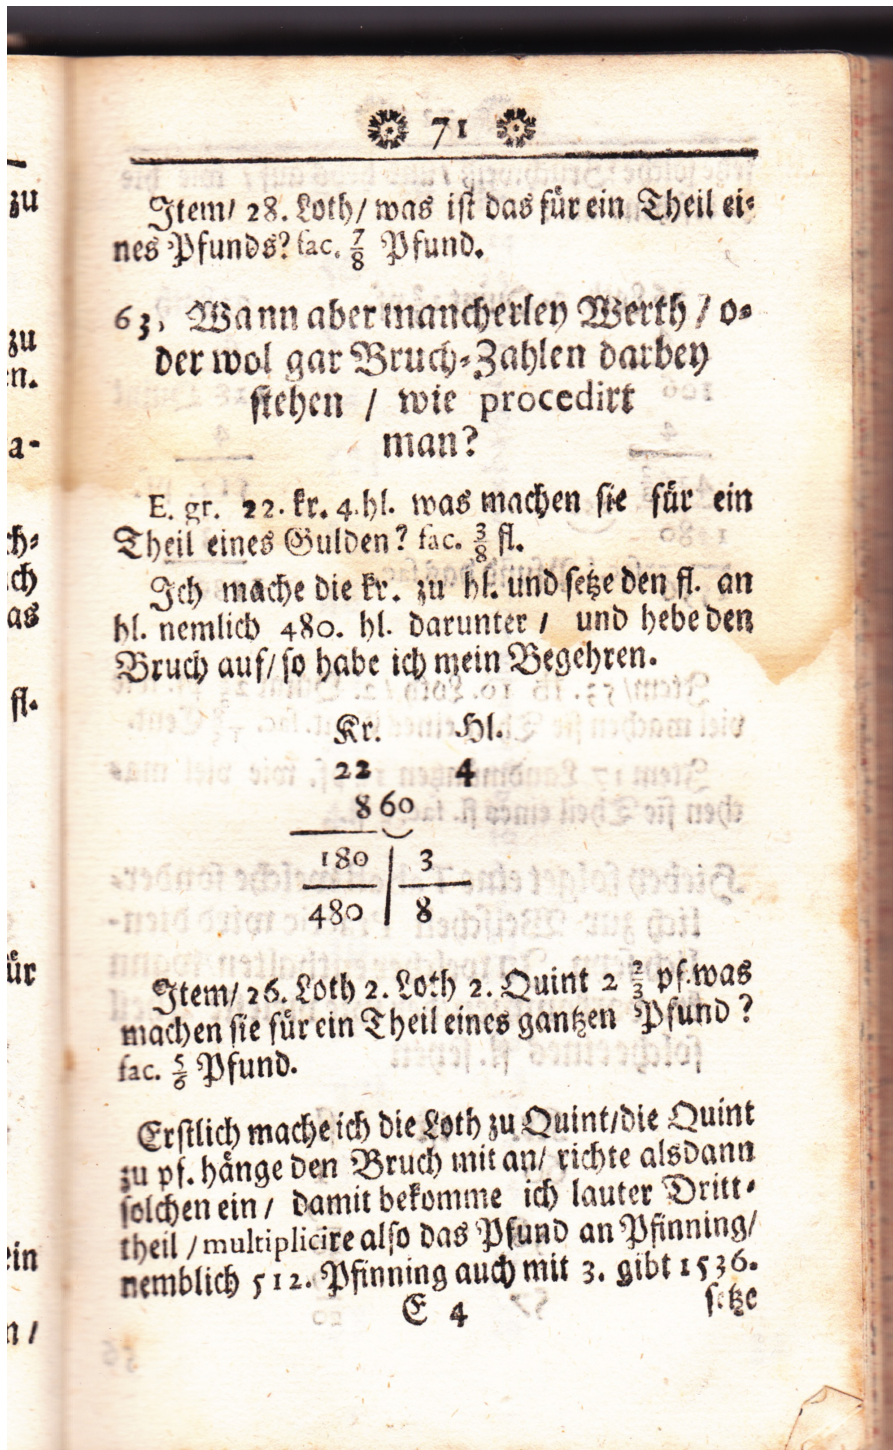 71
Item/ 28. Loth/ was ist das für ein Theil ei-
nes Pfunds? fac. 7/8 Pfund.
63. Wann aber mancherley Werth / o-
der wol gar Bruch-Zahlen darbey
stehen / wie procedirt
man?
E. gr. 22. kr. 4. hl. was machen sie für ein
Theil eines Gulden? fac. 3/8 fl.
Ich mache die kr. zu hl. und setze den fl. an
hl. nemlich 480. hl. darunter / und hebe den
Bruch auf/ so habe ich mein Begehren.
Kr. Hl.
22 4
8 60
180 | 3
480 | 8
Item/ 26. Loth 2. Loth 2. Quint 2 2/3 pf. was
machen sie für ein Theil eines gantzen Pfund?
fac. 5/6 Pfund.
Erstlich mache ich die Loth zu Quint/ die Quint
zu pf. hänge den Bruch mit an/ richte alsdann
solchen ein / damit bekomme ich lauter Dritt-
theil / multiplicire also das Pfund an Pfinning/
nemblich 512. Pfinning auch mit 3. gibt 1536.
E 4 setze
zu
zu
en.
a-
ch-
ch
as
fl.
ür
ein
n /